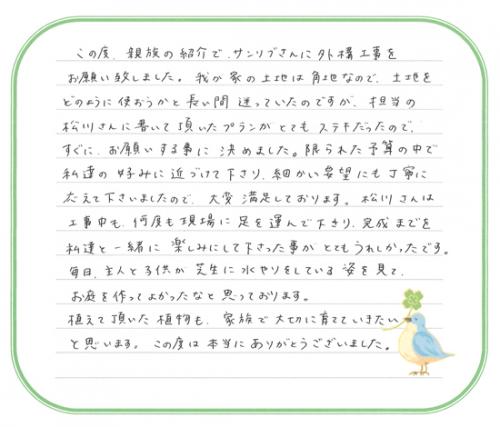 この度、親族の紹介で、サンリブさんに外構工事を
お願い致しました。我が家の土地は角地なので、土地を
どのように使おうかと長い間迷っていたのですが、担当の
松川さんに書いて頂いたプランがとてもステキだったので、
すぐに、お願いする事に決めました。限られた予算の中で
私達の好みに近づけて下さり、細かい要望にも丁寧に
応えて下さいましたので、大変満足しております。松川さんは
工事中も、何度も現場に足を運んで下さり、完成までを
私達と一緒に楽しみにして下さった事がとてもうれしかったです。
毎日、主人と子供が芝生に水やりをしている姿を見て、
お庭を作ってよかったなと思っております。
植えて頂いた植物も、家族で大切に育てていきたい
と思います。この度は本当にありがとうございました。